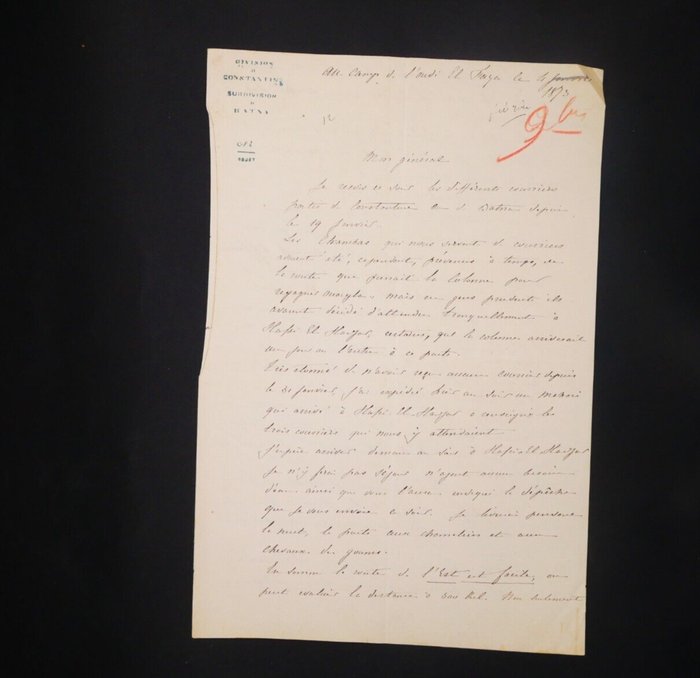 DIVISION
DE
CONSTANTINE
SUBDIVISION
DE
BATNA
OBJET
Au Camp de l'oued El Faya le 4 janvier
1873
février
9 bis
Mon général
Je reçois ce soir les différents courriers
partis de Constantine et de Biskra depuis
le 19 janvier.
Les Chambas qui nous servent de courriers
avaient été, cependant, prévenus à temps, de
la route que prenait la colonne pour
regagner ouargla, mais en gens prudents ils
avaient décidé d'attendre tranquillement à
Hassi El Hadjar, certains, que la colonne arriverait
un jour ou l'autre à ce puits.
Très étonné de n'avoir reçu aucun courrier depuis
le 20 janvier, j'ai expédié hier au soir un
qui arrivé à Hassi El Hadjar a renseigné les
trois courriers qui nous y attendaient.
J'espère arriver demain au soir à Hassi El Hadjar
je n'y ferai pas séjour n'ayant aucun besoin
d'eau ainsi que vous l'aura indiqué la dépêche
que je vous envoie ce soir. Je livrerai pendant
la nuit, le puits aux chameliers et aux
chevaux du goum.
En somme la route de l'Est est facile, on
peut évaluer la distance à 300 kil. Non seulement